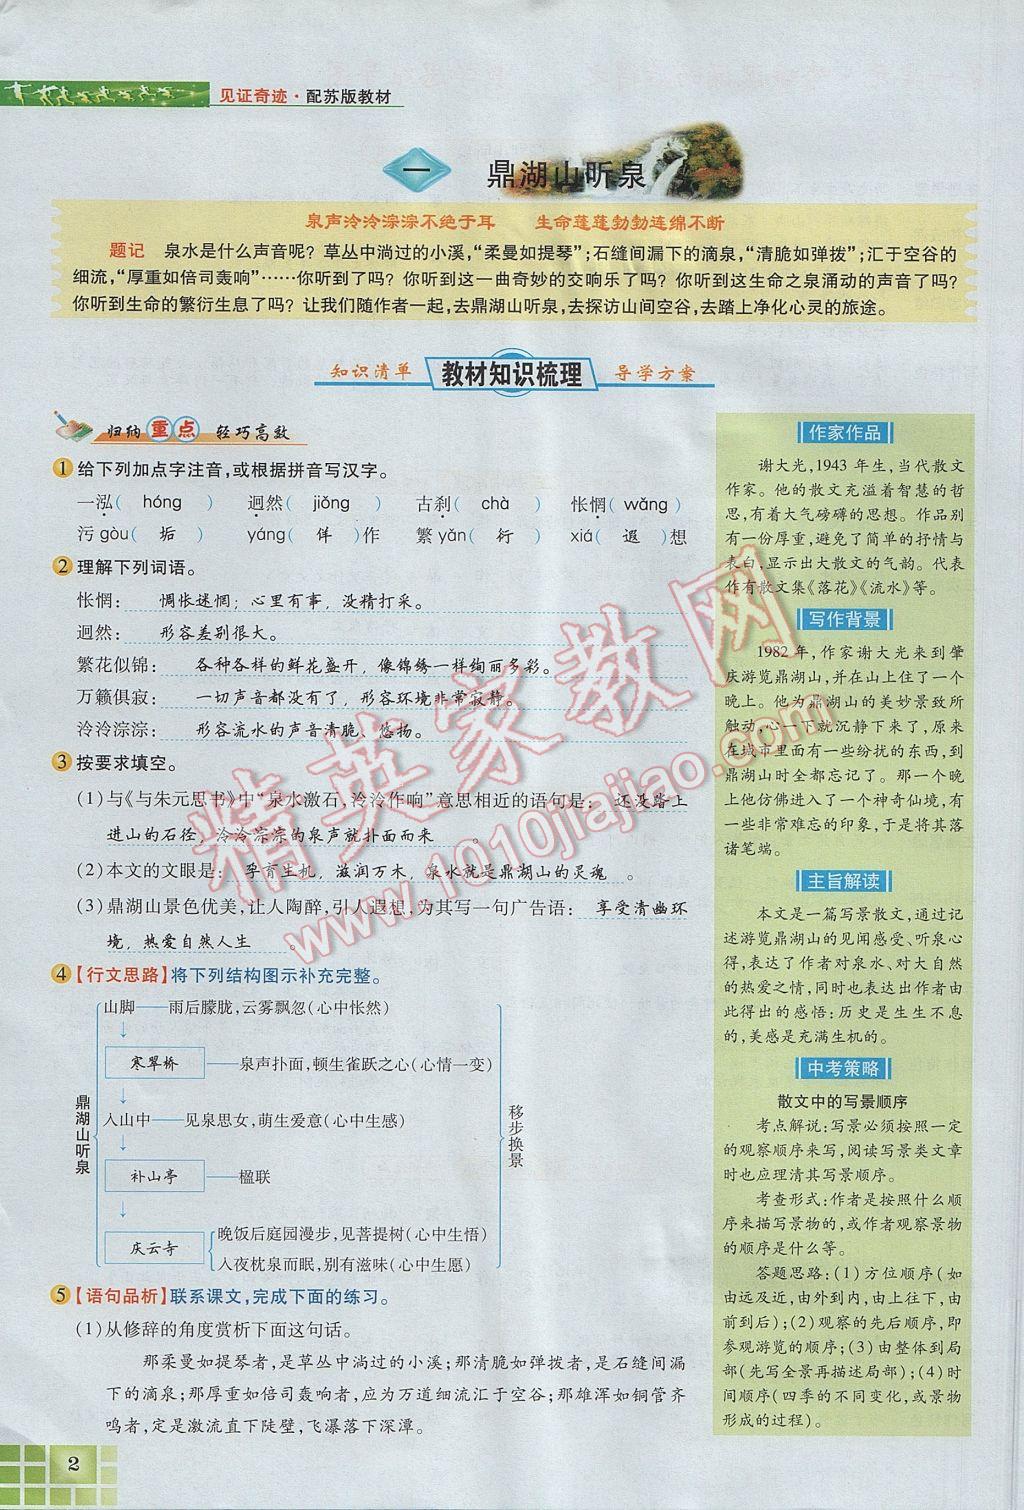 见证奇迹·配苏版教材
一 鼎湖山听泉
泉声泠泠淙淙不绝于耳 生命蓬蓬勃勃连绵不断
题记 泉水是什么声音呢？草丛中淌过的小溪，“柔曼如提琴”；石缝间漏下的滴泉，“清脆如弹拨”；汇于空谷的
细流，“厚重如倍司轰响”……你听到了吗？你听到这一曲奇妙的交响乐了吗？你听到这生命之泉涌动的声音了吗？
你听到生命的繁衍生息了吗？让我们随作者一起，去鼎湖山听泉，去探访山间空谷，去踏上净化心灵的旅途。
知识清单 教材知识梳理 导学方案
归纳重点 轻巧高效
1 给下列加点字注音，或根据拼音写汉字。
一泓（ hóng ） 迥然（ jiǒng ） 古刹（ chà ） 怅惘（ wǎng ）
污gòu（ 垢 ） yáng（ 佯 ）作 繁yǎn（ 衍 ） xiá（ 遐 ）想
2 理解下列词语。
怅惘： 惆怅迷惘；心里有事，没精打采。
迥然： 形容差别很大。
繁花似锦： 各种各样的鲜花盛开，像锦绣一样绚丽多彩。
万籁俱寂： 一切声音都没有了，形容环境非常寂静。
泠泠淙淙： 形容流水的声音清脆、悠扬。
3 按要求填空。
（1）与《与朱元思书》中“泉水激石，泠泠作响”意思相近的语句是： 还没踏上
进山的石径，泠泠淙淙的泉声就扑面而来 。
（2）本文的文眼是： 孕育生机，滋润万木，泉水就是鼎湖山的灵魂 。
（3）鼎湖山景色优美，让人陶醉，引人遐想，为其写一句广告语： 享受清幽环
境，热爱自然人生 。
4 【行文思路】将下列结构图示补充完整。
鼎湖山听泉
山脚——雨后朦胧，云雾飘忽（心中怅然）
寒翠桥——泉声扑面，顿生雀跃之心（心情一变）
入山中——见泉思女，萌生爱意（心中生感）
补山亭——楹联
庆云寺
晚饭后庭园漫步，见菩提树（心中生悟）
入夜枕泉而眠，别有滋味（心中生愿）
移步换景
5 【语句品析】联系课文，完成下面的练习。
（1）从修辞的角度赏析下面这句话。
那柔曼如提琴者，是草丛中淌过的小溪；那清脆如弹拨者，是石缝间漏
下的滴泉；那厚重如倍司轰响者，应为万道细流汇于空谷；那雄浑如铜管齐
鸣者，定是激流直下陡壁，飞瀑落下深潭。
作家作品
谢大光，1943年生，当代散文
作家。他的散文充溢着智慧的哲
思，有着大气磅礴的思想。作品别
有一份厚重，避免了简单的抒情与
表白，显示出大散文的气韵。代表
作有散文集《落花》《流水》等。
写作背景
1982年，作家谢大光来到肇
庆游览鼎湖山，并在山上住了一个
晚上。他为鼎湖山的美妙景致所
触动，心一下就沉静下来了，原来
在城市里面有一些纷扰的东西，到
鼎湖山时全都忘记了。那一个晚
上他仿佛进入了一个神奇仙境，有
一些非常难忘的印象，于是将其落
诸笔端。
主旨解读
本文是一篇写景散文，通过记
述游览鼎湖山的见闻感受、听泉心
得，表达了作者对泉水、对大自然
的热爱之情，同时也表达出作者由
此得出的感悟：历史是生生不息
的，美感是充满生机的。
中考策略
散文中的写景顺序
考点解说：写景必须按照一定
的观察顺序来写，阅读写景类文章
时也应理清其写景顺序。
考查形式：作者是按照什么顺
序来描写景物的，或作者观察景物
的顺序是什么等。
答题思路：（1）方位顺序（如
由远及近，由外到内，由上往下，由
前到后）；（2）观察的先后顺序，即
参观游览的顺序；（3）由整体到局
部（先写全景再描述局部）；（4）时
间顺序（四季的不同变化，或景物
形成的过程）。
精英家教网
www.1010jiajiao.com
2